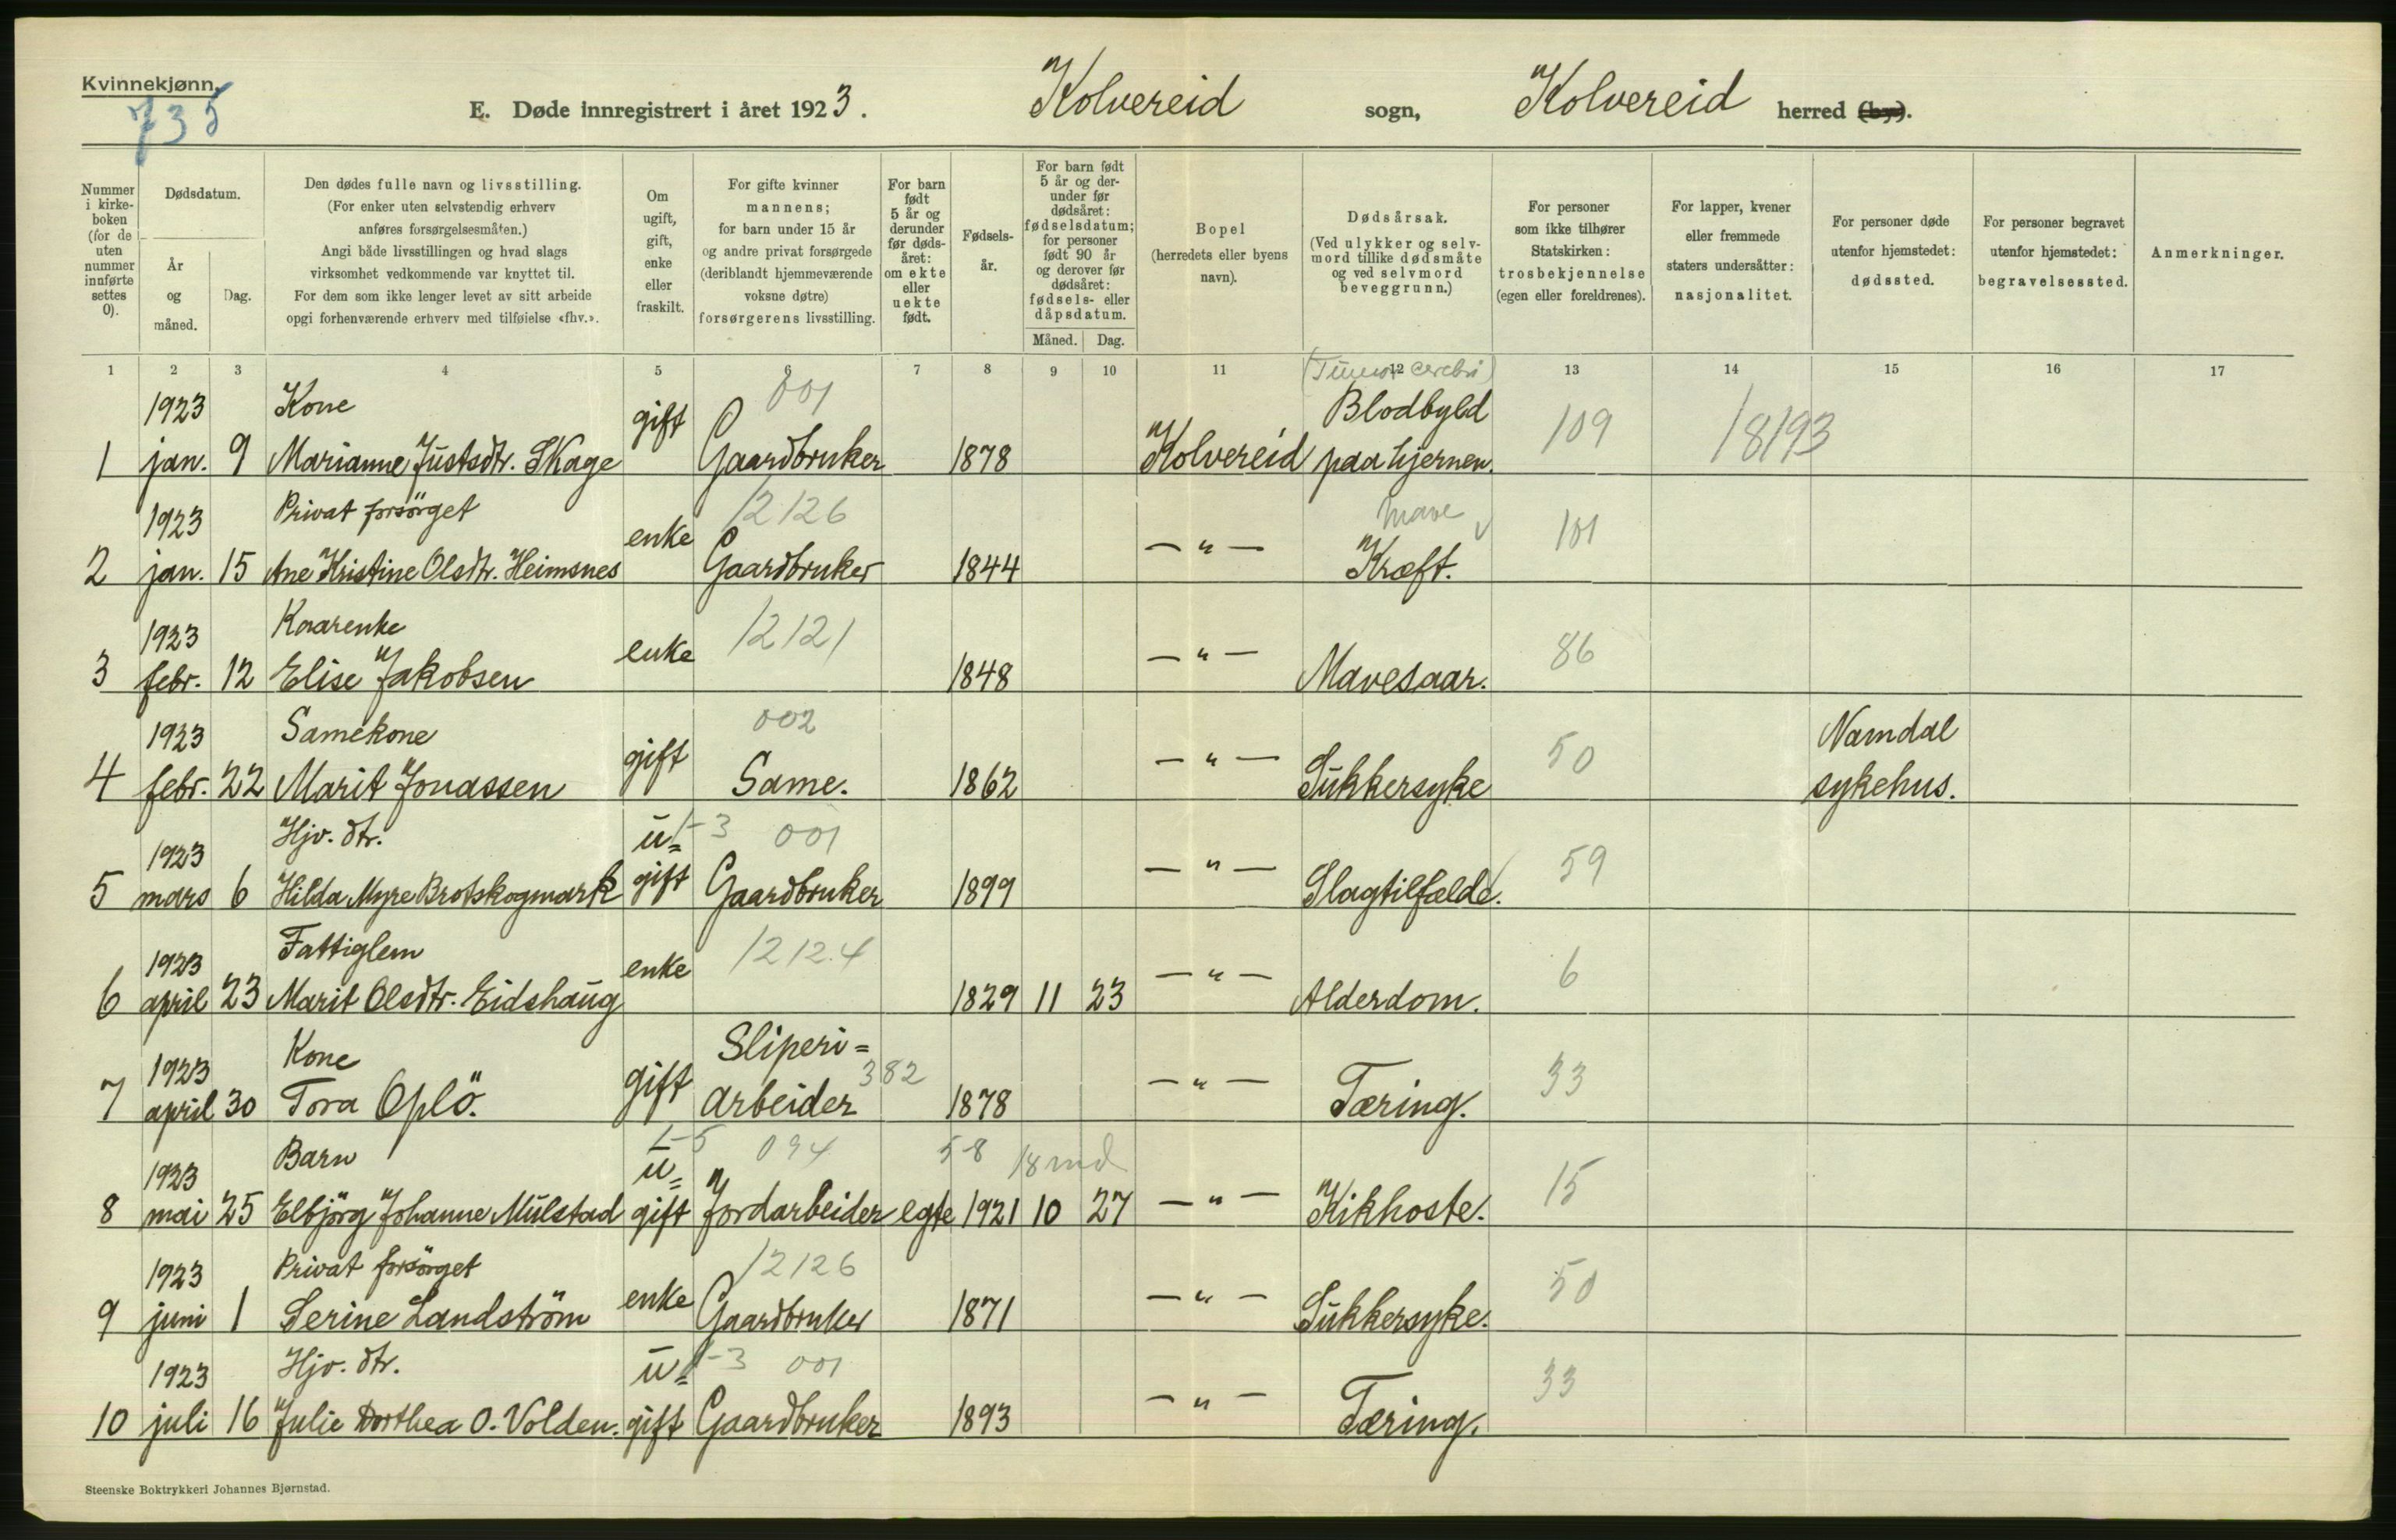 Kvinnekjønn.
735
E. Døde innregistrert i året 1923. Kolvereid sogn, Kolvereid herred (by).
Nummer i kirke-boken (for de uten nummer innførte settes 0).
Dødsdatum.
År og måned.
Dag.
Den dødes fulle navn og livsstilling.
(For enker uten selvstendig erhverv
anføres forsørgelsesmåten.)
Angi både livsstillingen og hvad slags
virksomhet vedkommende var knyttet til.
For dem som ikke lenger levet av sitt arbeide
opgi forhenværende erhverv med tilføielse «fhv.».
Om ugift, gift, enke eller fraskilt.
For gifte kvinner
mannens;
for barn under 15 år
og andre privat forsørgede
(deriblandt hjemmeværende
voksne døtre)
forsørgerens livsstilling.
For barn født 5 år og derunder før døds-året: om ekte eller uekte født.
Fødsels-år.
For barn født 5 år og der-under før dødsåret: fødselsdatum; for personer født 90 år og derover før dødsåret: fødsels- eller dåpsdatum.
Måned. Dag.
Bopel
(herredets eller byens
navn).
Dødsårsak.
(Ved ulykker og selv-
mord tillike dødsmåte
og ved selvmord
beveggrunn.)
For personer
som ikke tilhører
Statskirken:
trosbekjennelse
(egen eller foreldrenes).
For lapper, kvener
eller fremmede
staters undersåtter:
nasjonalitet.
For personer døde
utenfor hjemstedet:
dødssted.
For personer begravet
utenfor hjemstedet:
begravelsessted.
Anmerkninger.
1 2 3 4 5 6 7 8 9 10 11 12 13 14 15 16 17
1923 Kone 001 (Tumor cerebri)
gift Blodbyld 109 18193
1 jan. 9 Marianne Justsdtr. Skage Gaardbruker 1878 Kolvereid paa hjernen.
1923 Privat forsörget 12126 Mave
enke — " — 101
2 jan. 15 Ane Kristine Olsdtr. Heimsnes Gaardbruker 1844 Kræft.
1923 Kaarenke 12121
enke — " — 86
3 febr. 12 Elise Jakobsen 1848 Mavesaar.
1923 Samekone 002 Namdal
gift — " — 50
4 febr. 22 Marit Jonassen Same. 1862 Sukkersyke sykehus.
1923 Hjv. dtr. u= 1-3 001
— " — 59
5 mars 6 Hilda Myre Brotskogmark gift Gaardbruker 1899 Slagtilfælde.
1923 Fattiglem 1212.4
enke — " — 6
6 april 23 Marit Olsdtr. Eidshaug 1829 11 23 Alderdom.
1923 Kone Sliperi=
gift 382 — " — 33
7 april 30 Tora Oplö. arbeider 1878 Tæring.
1923 Barn u= 1-5 094 58 18 md
— " — 15
8 mai 25 Elbjörg Johanne Mulstad gift Jordarbeider egte 1921 10 27 Kikhoste.
1923 Privat forsörget 12126
enke — " — 50
9 juni 1 Serine Landström Gaardbruker 1871 Sukkersyke.
1923 Hjv. dtr. u= 1-3 001
— " — 33
10 juli 16 Julie Dorthea O. Volden. gift Gaardbruker 1893 Tæring.
Steenske Boktrykkeri Johannes Bjørnstad.